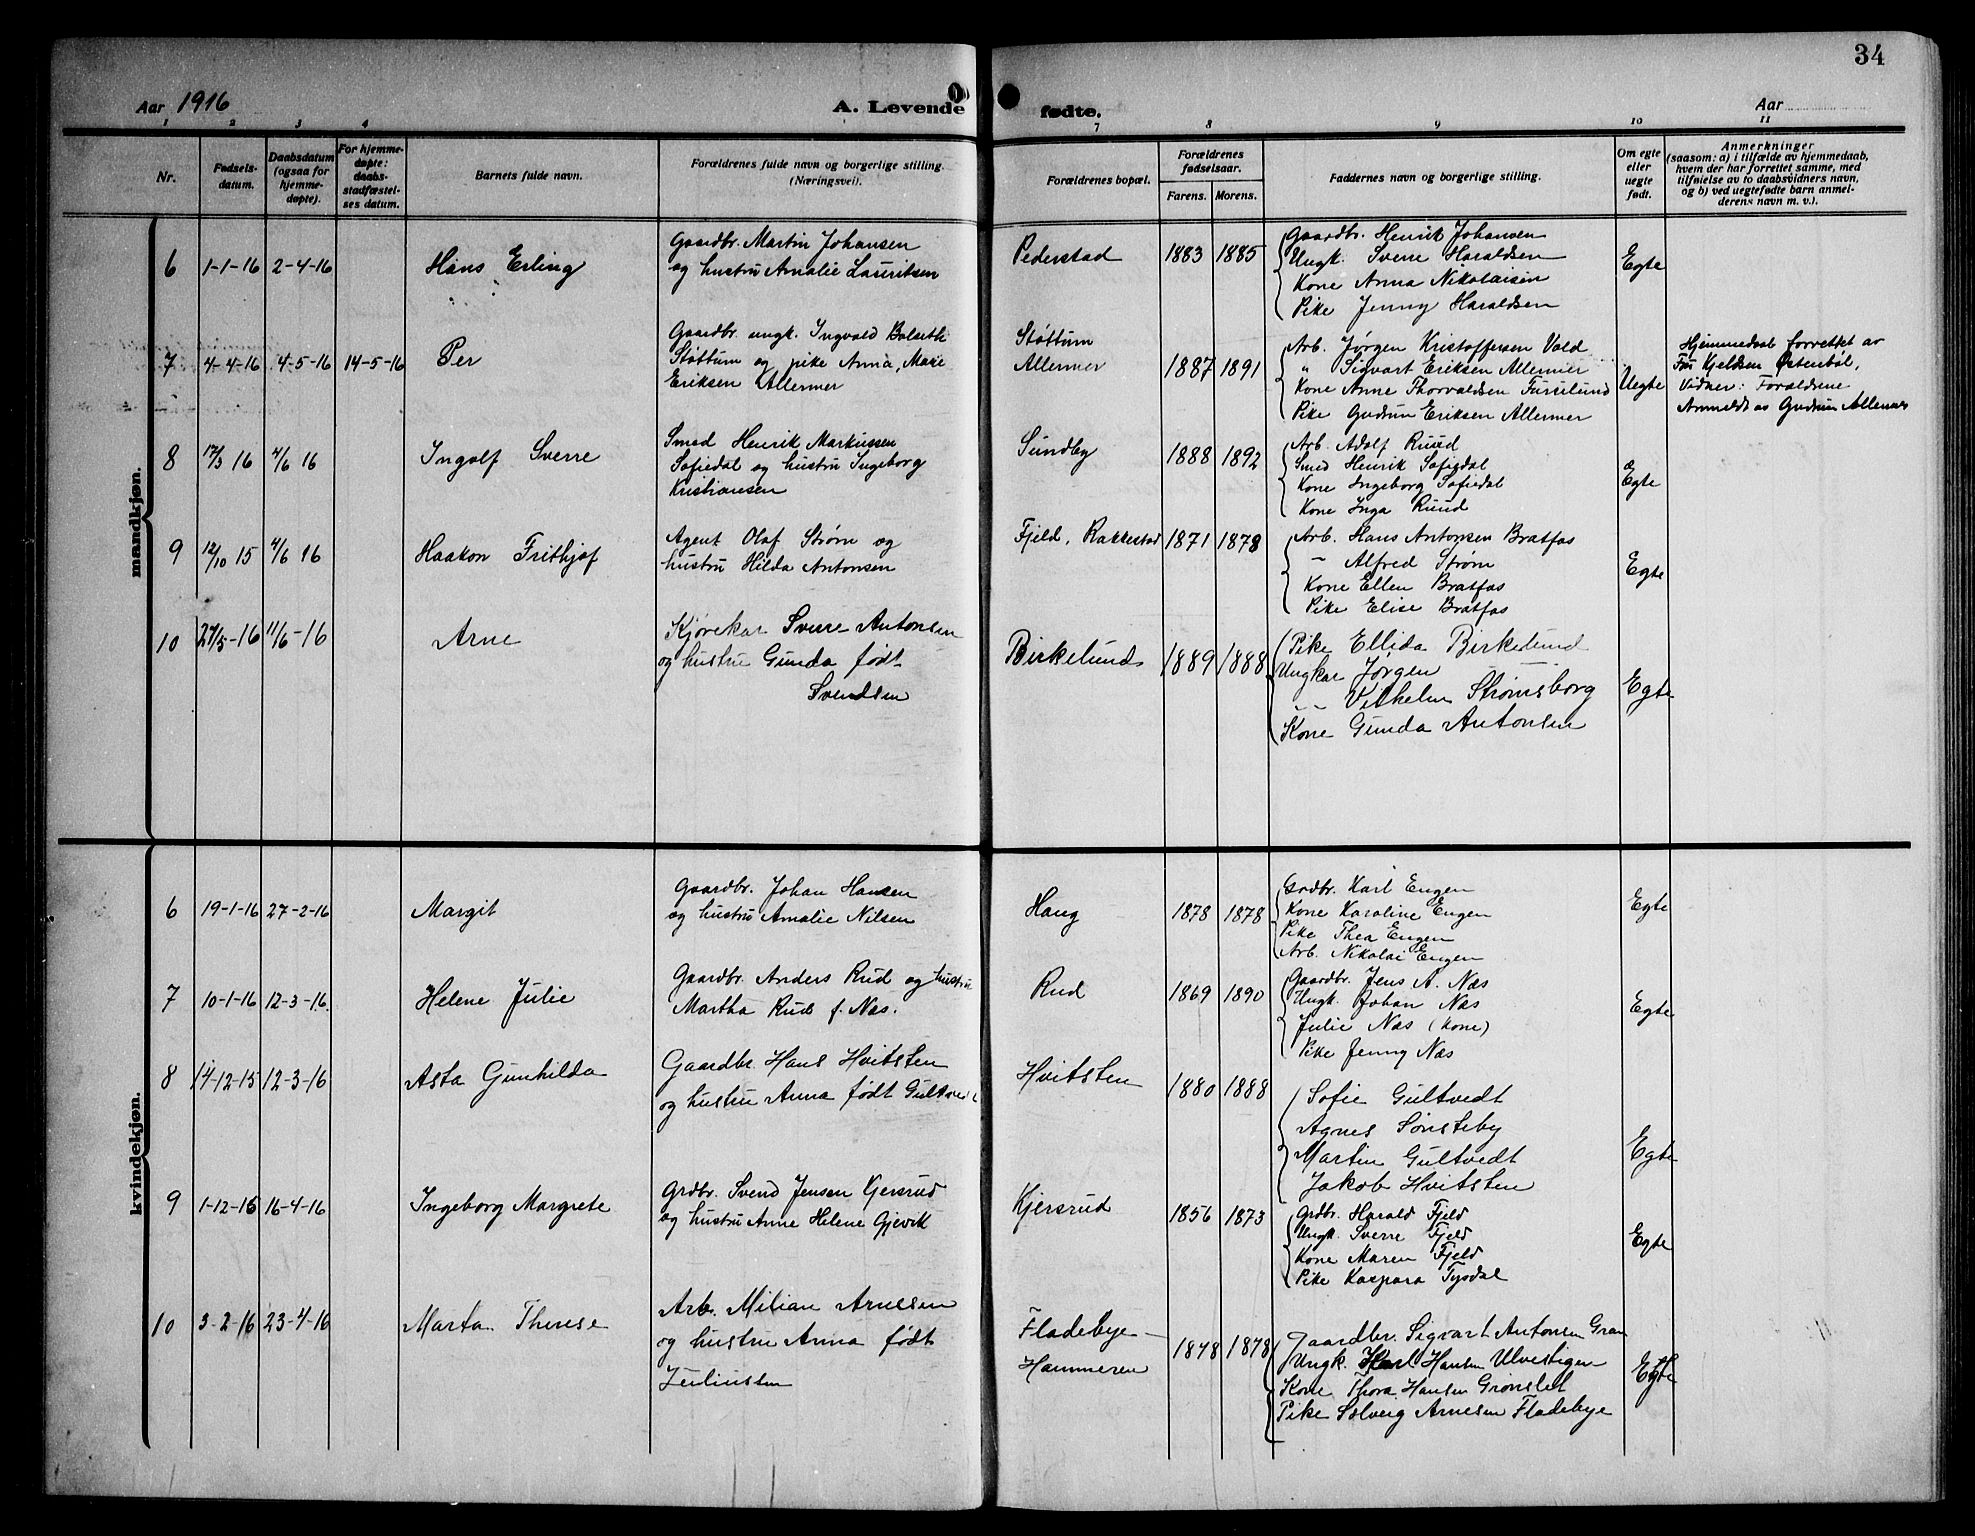 34
Aar 1916
A. Levende
fødte.
Aar
1 2 3 4
7 8 9 10 11
Nr.
Fødsels-
datum.
Daabsdatum
(ogsaa for
hjemme-
døpte).
For hjemme-
døpte:
daabs-
stadfæstel-
ses datum.
Barnets fulde navn.
Forældrenes fulde navn og borgerlige stilling.
(Næringsvei).
Forældrenes bopæl.
Forældrenes
fødselsaar.
Farens. Morens.
Faddernes navn og borgerlige stilling.
Om egte
eller
uegte
født.
Anmerkninger
(saasom: a) i tilfælde av hjemmedaab,
hvem der har forrettet samme, med
tilføielse av to daabsvidners navn,
og b) ved uegtefødte barn anmel-
derens navn m. v.).
mandkjøn.
6 1-1-16 2-4-16 Hans Erling
Gaardbr. Martin Johansen
og hustru Amalie Lauritsen
Pederstad 1883 1885
Gaardbr. Henrik Johansen
Ungk. Sverre Haraldsen
Kone Anna Nikolaisen
Pike Jenny Haraldsen
Egte
7 4-4-16 4-5-16 14-5-16 Per
Gaardbr. ungk. Ingvald Bolseth
Støttum og pike Anna Marie
Eriksen Allermer
Støttum
Allermer
1887 1891
Arb. Jørgen Kristoffersen Vold
" Sigvart Eriksen Allermer
Kone Anne Thorvaldsen Furulund
Pike Gudrun Eriksen Allermer
Uegte
Hjemmedaab forrettet av
Fru Kjeldsen Østenbøl,
Vidner: Forældrene
Anmeldt av Gudrun Allermer
8 17/3 16 4/6 16 Ingolf Sverre
Smed Henrik Markussen
Sofiedal og hustru Ingeborg
Kristiansen
Sundby 1888 1892
Arb. Adolf Ruud
Smed Henrik Sofiedal
Kone Ingeborg Sofiedal
Kone Inga Ruud
Egte
9 12/10 15 4/6 16 Haakon Frithjof
Agent Olaf Strøm og
hustru Hilda Antonsen
Fjeld, Rakkestad 1871 1878
Arb. Hans Antonsen Bratfos
- Alfred Strøm
Kone Ellen Bratfos
Pike Elise Bratfos
Egte
10 27/5-16 11/6-16 Arne
Kjørekar Sverre Antonsen
og hustru Gunda født
Svendsen
Birkelunds 1889 1888
Pike Ellida Birkelund
Ungkar Jørgen
- - Vilhelm Strømsborg
Kone Gunda Antonsen
Egte
kvindekjøn.
6 19-1-16 27-2-16 Margit
Gaardbr. Johan Hansen
og hustru Amalie Nilsen
Haug 1878 1878
Grdbr. Karl Engen
Kone Karoline Engen
Pike Thea Engen
Arb. Nikolai Engen
Egte
7 10-1-16 12-3-16. Helene Julie
Gaardbr. Anders Rud og hustru
Martha Rud f. Næs.
Rud 1869 1890
Gaardbr. Jens A. Næs
Ungk. Johan Næs
Julie Næs (kone)
Pike Jenny Næs
Egte
8 14-12-15 12-3-16 Asta Gunhilda
Gaardbr. Hans Hvitsten
og hustru Anna født Gultvedt
Hvitsten 1880 1888
Sofie Gultvedt
Agnes Sønsteby
Martin Gultvedt
Jakob Hvitsten
Egte
9 1-12-15 16-4-16 Ingeborg Margrete
Grdbr. Svend Jensen Kjersrud
og hustru Anne Helene Gjevik
Kjersrud 1856 1873
Grdbr. Harald Fjeld
Ungk. Sverre Fjeld
Kone Maren Fjeld
Pike Kaspara Tysdal
Egte
10 3-2-16 23-4-16 Marta Therese
Arb. Milian Arnesen
og hustru Anna født
Juliussen
Fladebye-
Hammeren
1848 1878
Gaardbr. Sigvart Antonsen Gran
Ungk. Karl Hansen Ulvestigen
Kone Thora Hansen Grønslet
Pike Solveig Arnesen Fladebye
Egte